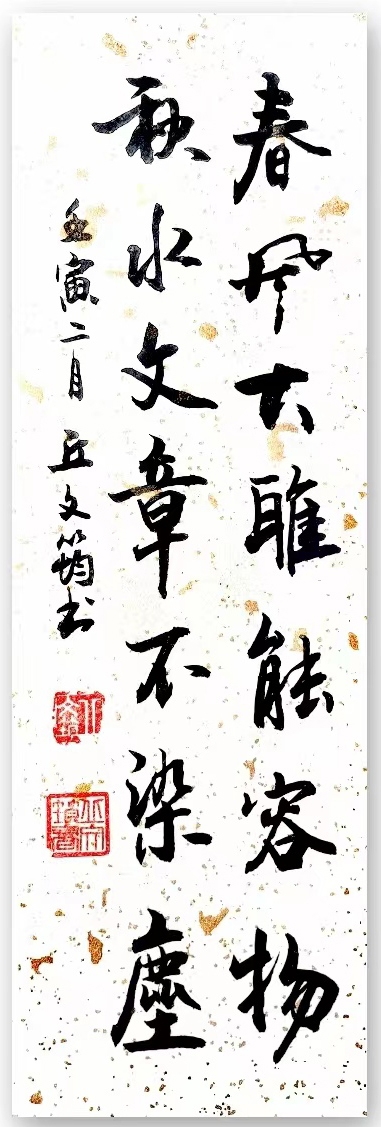 春风大雅能容物
秋水文章不染尘
壬寅二月 丘文筠书